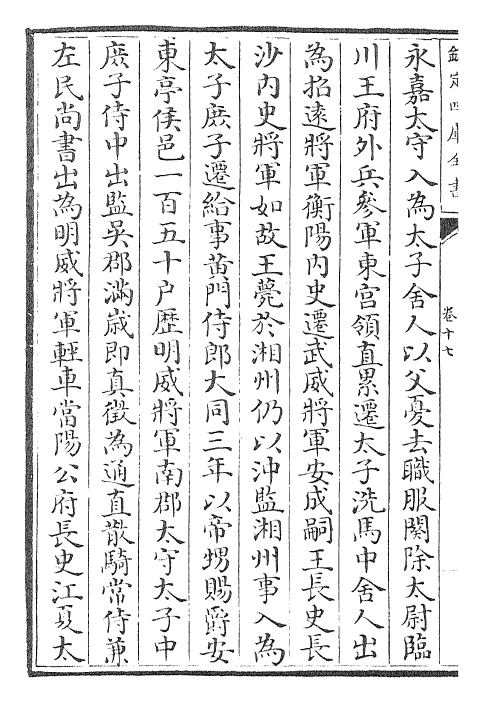 欽定四庫全書
卷十七
永嘉太守入為太子舍人以父憂去職服闋除太尉臨
川王府外兵參軍東宮領直累遷太子洗馬中舍人出
為招遠將軍衡陽內史遷武威將軍安成嗣王長史長
沙內史將軍如故王薨於湘州仍以沖監湘州事入為
太子庶子遷給事黃門侍郎大同三年以帝甥賜爵安
東亭侯邑一百五十户歷明威將軍南郡太守太子中
庶子侍中出監吳郡滿歲即真徵為通直散騎常侍兼
左民尚書出為明威將軍輕車當陽公府長史江夏太